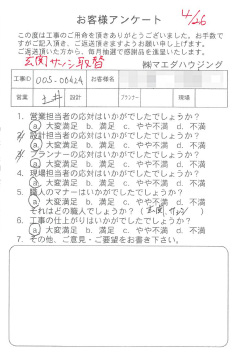 お客様アンケート 4/26
この度は工事のご用命を頂きありがとうございました。お手数で
すがご記入頂き、ご返送頂きますようお願い申し上げます。
ご返送頂いた方から、毎月抽選で感謝品を進呈いたします。
玄関サッシ取替
㈱マエダハウジング
工事ID 005-00424 お客様名
営業 土井 設計 プランナー 現場
1. 営業担当者の応対はいかがでしたでしょうか?
a. 大変満足 b. 満足 c. やや不満 d. 不満
2. 設計担当者の応対はいかがでしたでしょうか?
a. 大変満足 b. 満足 c. やや不満 d. 不満
3. プランナーの応対はいかがでしたでしょうか?
a. 大変満足 b. 満足 c. やや不満 d. 不満
4. 現場担当者の応対はいかがでしたでしょうか?
a. 大変満足 b. 満足 c. やや不満 d. 不満
5. 職人のマナーはいかがでしたでしょうか?
a. 大変満足 b. 満足 c. やや不満 d. 不満
それはどの職人でしょうか?(玄関サッシ)
6. 工事の仕上がりはいかがでしたでしょうか?
a. 大変満足 b. 満足 c. やや不満 d. 不満
7. その他、ご意見・ご要望をお書き下さい。